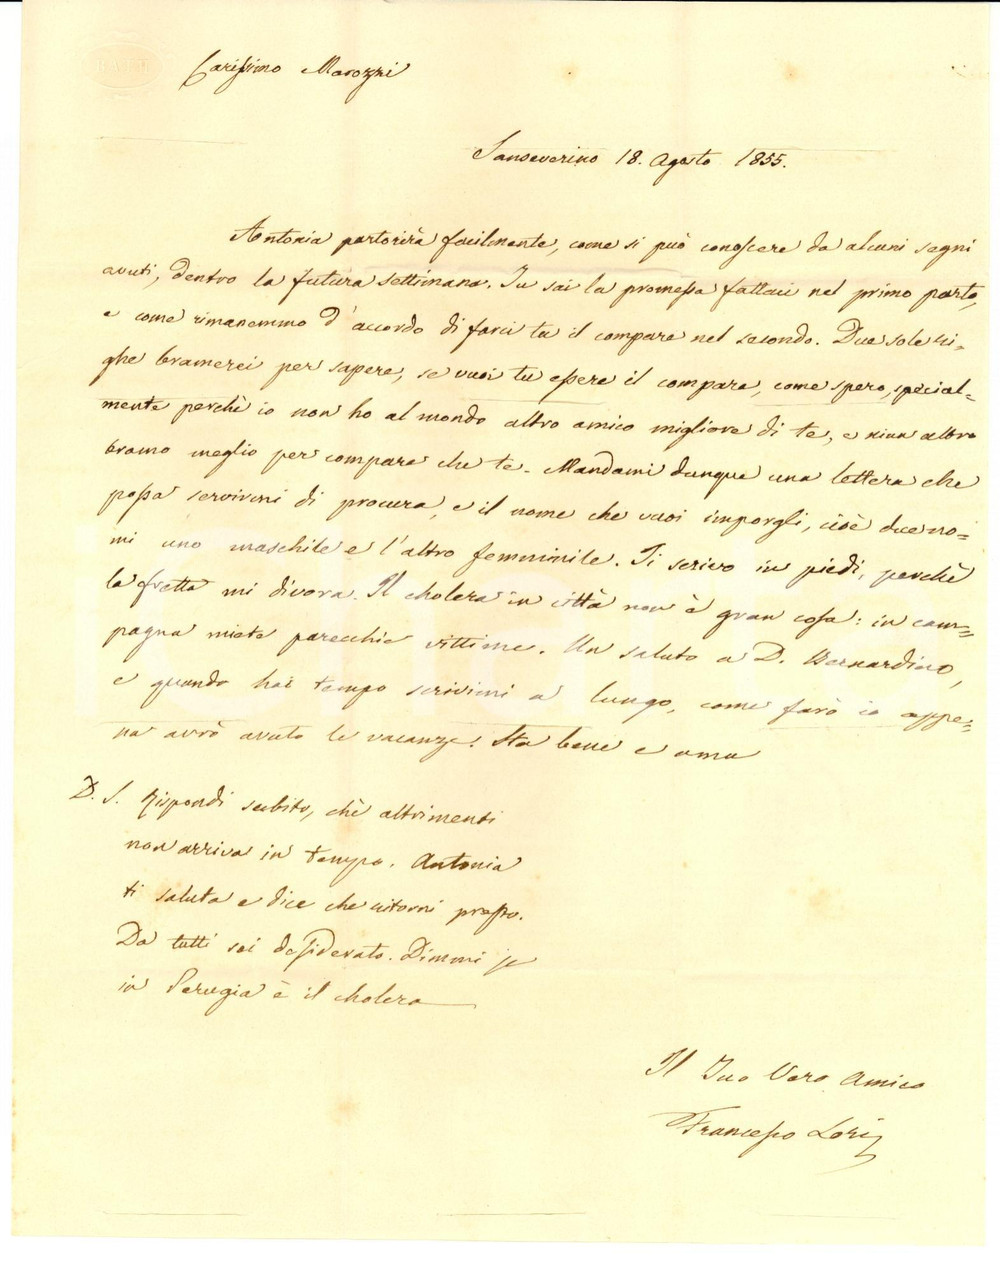 BATH
Carissimo Marozzi
Sanseverino 18. Agosto 1855.
Antonia partorirà facilmente, come si può conoscere da alcuni segni
avuti, dentro la futura settimana. Tu sai la promessa fattaci nel primo parto,
e come rimanemmo d'accordo di farci tu il compare nel secondo. Due sole ri=
ghe bramerei per sapere, se vuoi tu essere il compare, come spero, special=
mente perchè io non ho al mondo altro amico migliore di te, e niun altro
bramo meglio per compare che te. Mandami dunque una lettera che
possa servirmi di procura, e il nome che vuoi imporgli, cioè due no=
mi uno maschile e l'altro femminile. Ti scrivo in piedi, perchè
la fretta mi divora. Il cholera in città non è gran cosa: in cam=
pagna miete parecchie vittime. Un saluto a D. Bernardino,
e quando hai tempo scrivimi a lungo, come farò io appe=
na avrò avuto le vacanze. Sta bene e ama
P. S. Rispondi subito, chè altrimenti
non arriva in tempo. Antonia
ti saluta e dice che ritorni presto.
Da tutti sei desiderato. Dimmi se
in Perugia è il cholera
Il Tuo Vero Amico
Francesco Lori